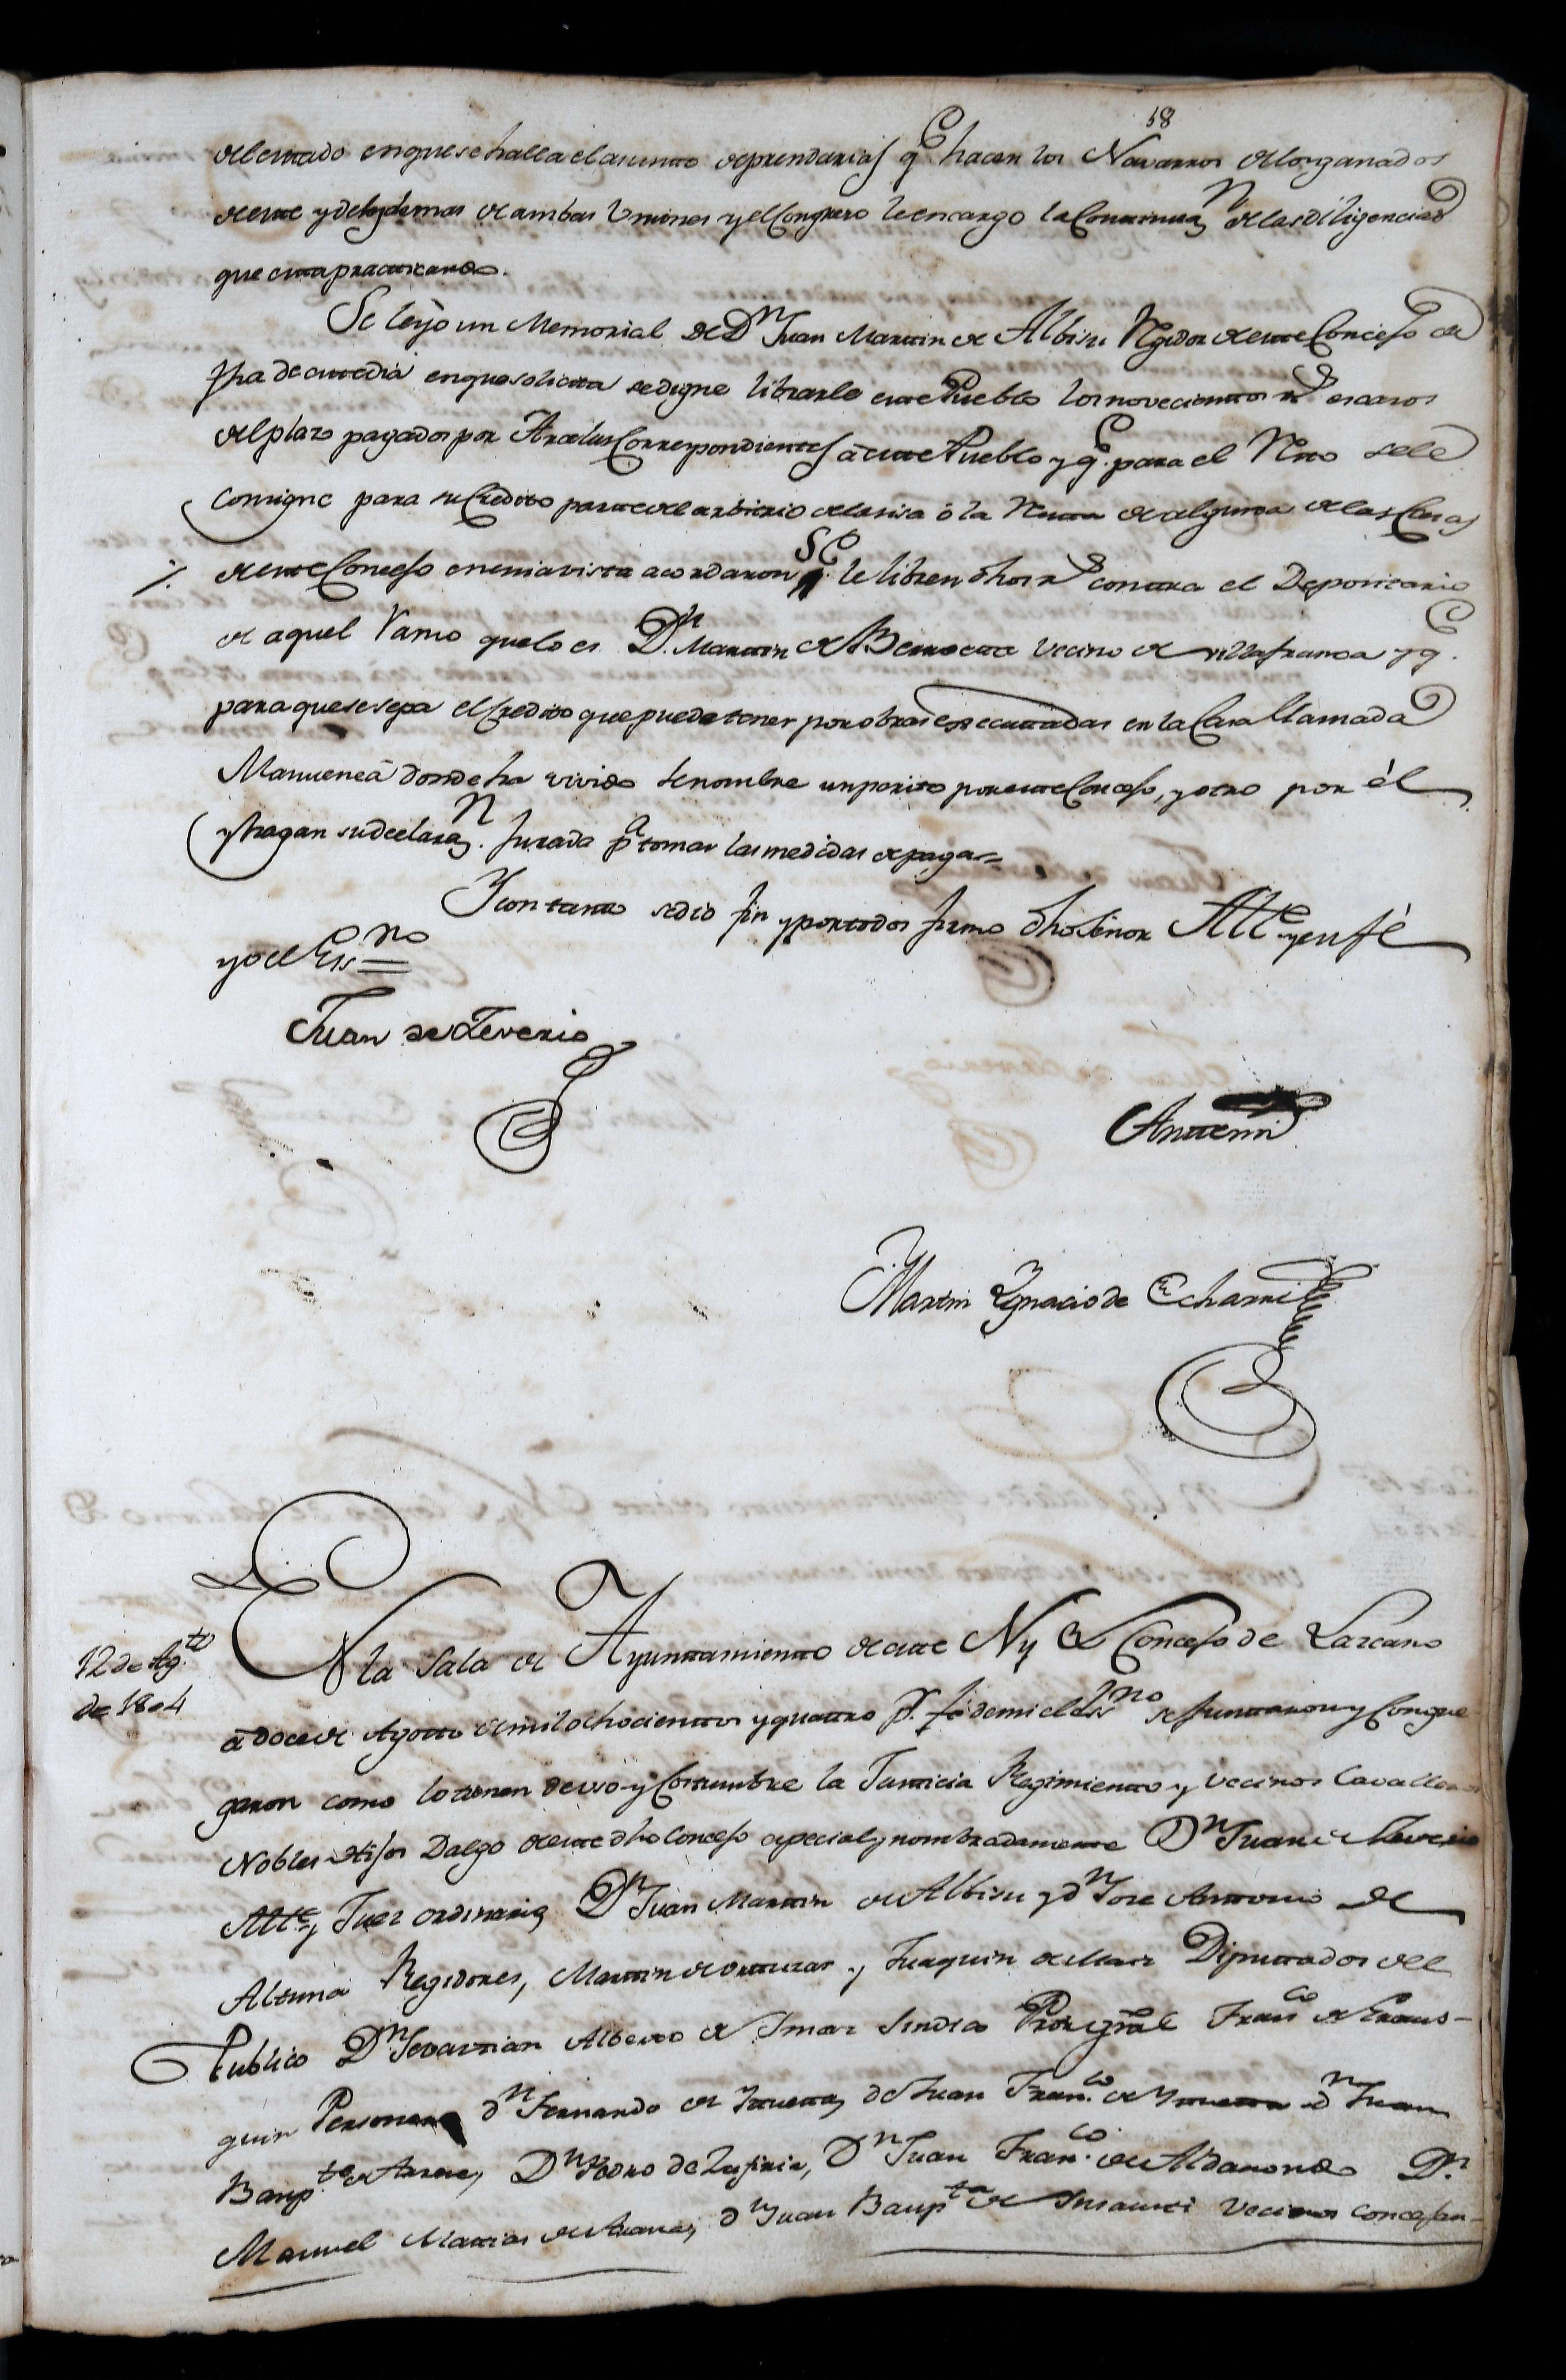 58
del estado en que se halla el asunto de prendarias q.e hacen los Navarros de los ganados
de este y de los demas de ambas Uniones y el Congreso le encargo la Continuaz.n de las diligencias
que esta practicando.
Se leyo un Memorial de D.n Juan Martin de Albisu Regidor de este Concejo de
fha de este dia en que solicita se digne librarle este Pueblo los novecientos r.s escasos
del plazo pagados por Arcelus Correspondientes à este Pueblo y q.e para el Resto se le
Consigne para su Credito parte del arbitrio de la sisa ò la Renta de alguna de las Casas
de este Concejo en cuia vista acordaron se le libren dhos r.s contra el Depositario
de aquel Ramo que lo es D.n Martin de Berroeta vecino de villafranca y q.e
para que se sepa el Credito que puede tener por obras essecutadas en la Casa llamada
Manuenea donde ha vivido se nombre un perito por este Concejo, y otro por èl
y hagan su declaraz.n Jurada p.a tomar las medidas de paga=
Y con tanto se dio fin y por todos firmo dho señor Alt.e y en fè
yo el Ess.no =
Juan de Teveria
Antemi
Martin Ygnacio de Echarri
12 de Ag.to
de 1804
EN la Sala de Ayuntamiento de este N y L Concejo de Lazcano
à doce de Agosto de mil ochocientos y quattro p.r fè de mi el Ess.no se Juntaron y Congre
garon como lo tienen de uso y Costumbre la Justicia Regimiento y vecinos Cavalleros
Nobles Hijos Dalgo de este dho Concejo especial y nombradamente D.n Juan de Teveria
Alt.e y Juez ordinario, D.n Juan Martin de Albisu y d.n Jose Antonio de
Altuna Regidores, Martin de Ortuzar y Juaquin de Maiz Diputados del
Publico D.n Sevastian Alberto de Imaz Sindico Pror gral Fran.co de Eraus-
quin Personero d.n Fernando de Yrueta, d.n Juan Fran.co de Yrueta d.n Juan
Baup.ta de Arana, D.n Pedro de Lasfiria, D.n Juan Fran.co de Aldanondo D.n
Manuel Matias de Arana, d.n Juan Baup.ta de Insausti Vecinos concejan-